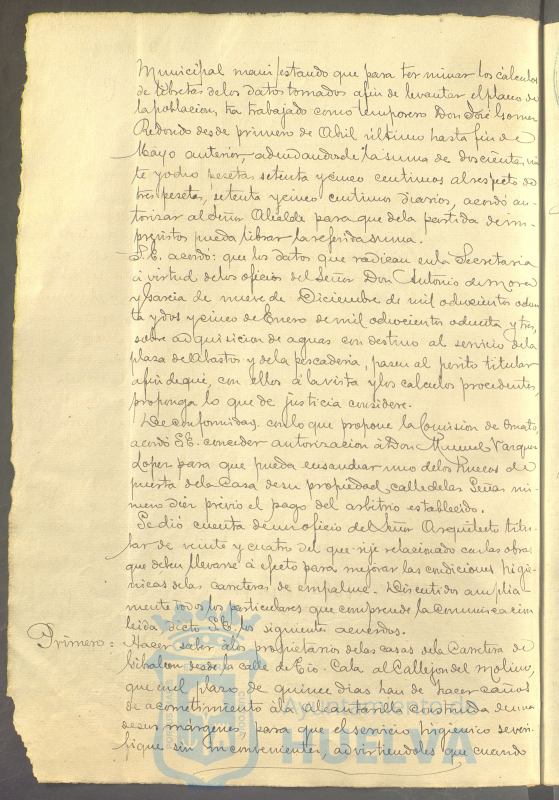 Municipal manifestando que para terminar los calculos
de libretas de los datos tomados afin de levantar el plano de
la poblacion, ha trabajado como temporero Don José Gomez
Redondo desde primero de Abril último hasta fin de
Mayo anterior, adeudandosele la suma de doscientas vein
te y ocho pesetas setenta y cinco centimos al respecto de
tres pesetas, setenta y cinco centimos diarios, acordó au-
torizar al Señor Alcalde para que de la partida de im-
previstos pueda librar la referida suma.
S.E. acordó: que los datos que radican en la Secretaria
á virtud de los oficios del Señor Don Antonio de Mora
y Garcia de nueve de Diciembre de mil ochocientos ochen
ta y dos y cinco de Enero de mil ochocientos ochenta y tres,
sobre adquisicion de aguas con destino al servicio de la
plaza de Abastos y de la pescaderia, pasen al perito titular
afin de que, con ellos á la vista y los calculos procedentes,
proponga lo que de justicia considere.
De conformidad con lo que propone la Comision de Ornato
acordó S.E. conceder autorizacion á Don Manuel Vazquez
Lopez para que pueda ensanchar uno de los huecos de
puerta de la Casa de su propiedad calle de las Señas nú-
mero diez previo el pago del arbitrio establecido.
Se dió cuenta de un oficio del Señor Arquitecto titu-
lar de veinte y cuatro del que rije relacionado con las obras
que deben llevarse á efecto para mejorar las condiciones higie-
nicas de las carreteras de empalme. Discutidos amplia-
mente todos los particulares que comprende la comunicacion
leida dictó S.E. los siguientes acuerdos.
Primero: Hacer saber á los propietarios de las casas de la Carretera de
Gibraleon desde la calle de Tio-Cala al Callejon del Molino,
que en el plazo de quince dias han de hacer caños
de acometimiento á la alcantarilla construida en una
de sus márgenes para que el servicio higienico se veri-
fique sin inconvenientes, advirtiendoles que cuando
Ayuntamiento de
HUELVA